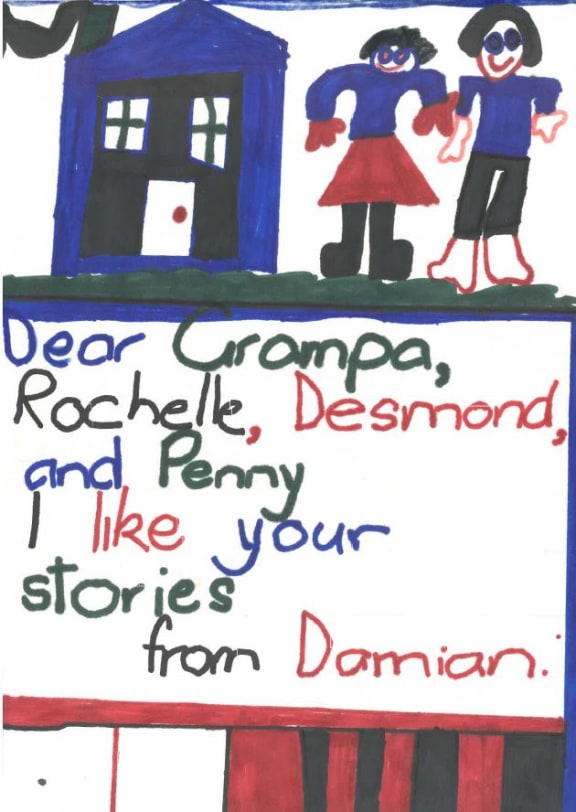 Dear Grampa,
Rochelle, Desmond,
and Penny
I like your
stories
from Damian.